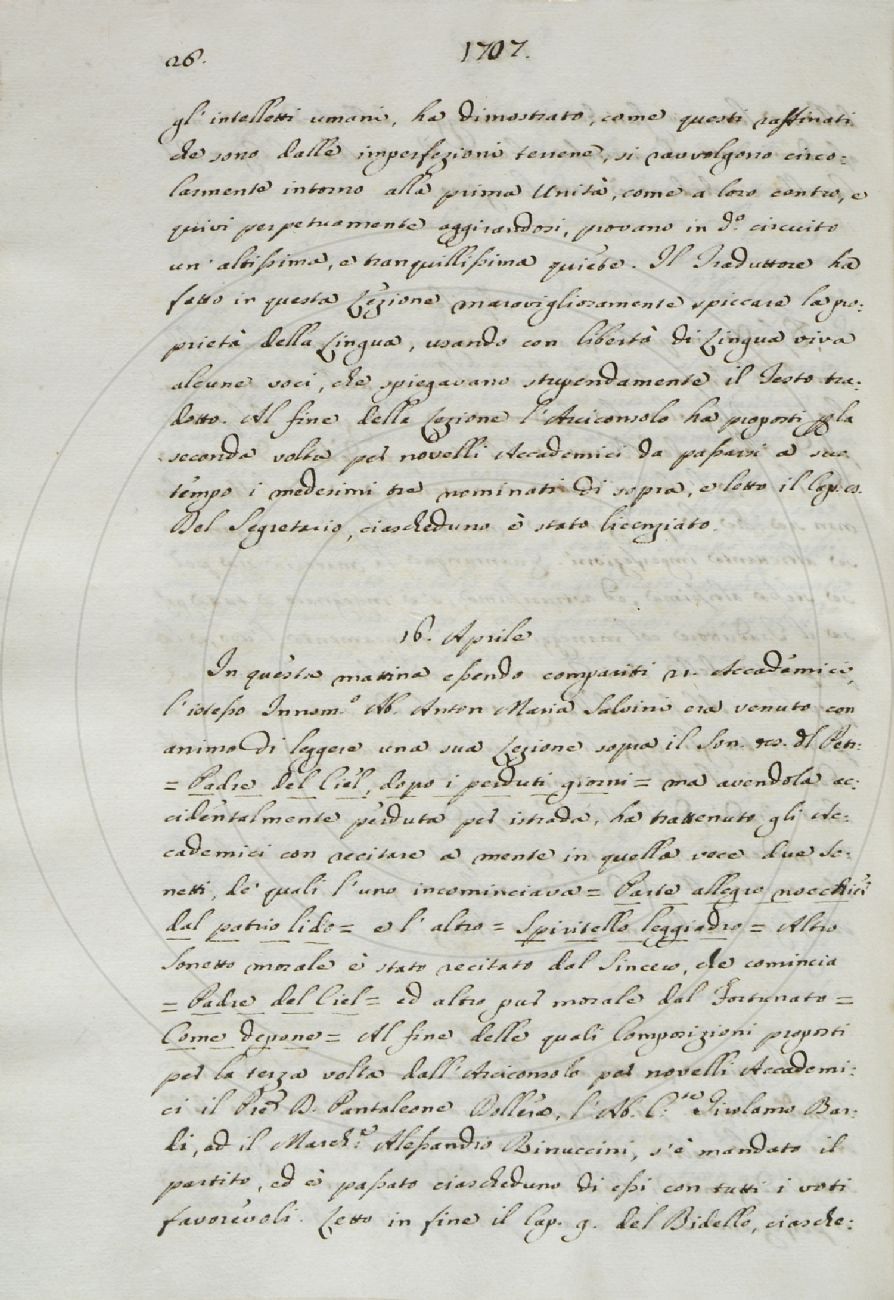 26.
1707.
gl' intelletti umani, ha dimostrato, come questi raffinati
che sono dalle imperfezioni terrene, si ravvolgono circo:
larmente intorno alla prima Unità, come a loro centro, e
quivi perpetuamente aggirandosi, provano in d.º circuito
un' altissima, e tranquillissima quiete. Il Traduttore ha
fatto in questa Lezione maravigliosamente spiccare la pro:
prietà della Lingua, usando con libertà di Lingua viva
alcune voci, che spiegavano stupendamente il Testo tra:
dotto. Al fine della Lezione l'Arciconsolo ha proposti p la
seconda volta per novelli Accademici da passarsi a suo
tempo i medesimi tre nominati di sopra, e letto il Cap.
Del Segretario, ciascheduno è stato licenziato.
16. Aprile
In questa mattina essendo compariti 21. Accademici,
l'istesso Innom.º Ab. Anton Maria Salvini era venuto con
animo di leggere una sua Lezione sopra il Son. del Petr:
= Padre del Ciel, dopo i perduti giorni = ma avendola ac:
cidentalmente perduta per istrada, ha trattenuto gli Ac:
cademici con recitare a mente in quella voce due So:
netti, de' quali l'uno incominciava = Parte allegro nocchier
dal patrio lido = e l' altro = Spiritello leggiadro = Altro
Sonetto morale è stato recitato dal Sincero, che comincia
= Padre del Ciel = ed altro pur morale dal Fortunato =
Come depone = Al fine delle quali Composizioni proposti
per la terza volta dall'Arciconsolo per novelli Accademi:
ci il Pre D. Pantaleone Dollera, l'Ab. C.te Girolamo Bar:
di, ed il March.e Alessandro Rinuccini, s'è mandato il
partito, ed è passato ciascheduno di essi con tutti i voti
favorevoli. Letto in fine il Cap. 9. del Bidello, ciasche: